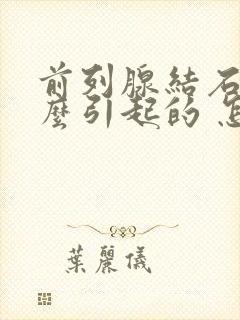 前列腺結石
麼引起的
葉麗儀